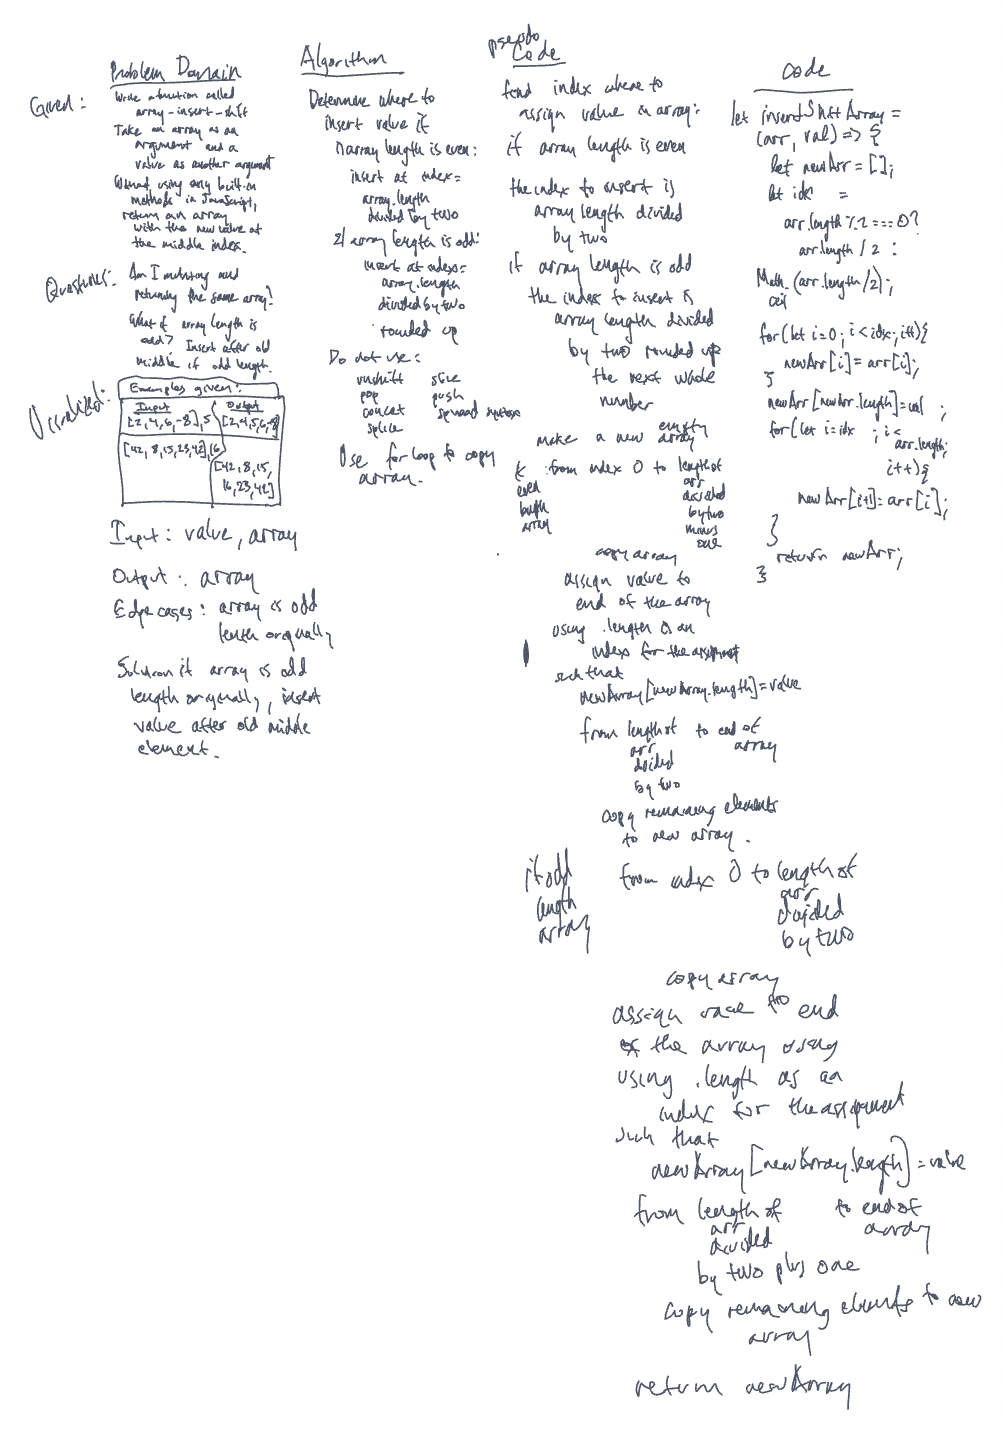 Problem Domain
Given:
Write a function called
array-insert-shift
Take an array as an
argument and a
value as another argument
Without using any built-in
methods in JavaScript,
return an array
with the new value at
the middle index.
Questions:
Am I mutating and
returning the same array?
What if array length is
odd? Insert after old
middle if odd length.
Visualized:
Examples given:
Input Output
[2,4,6,-8],5 [2,4,5,6,-8]
[42,8,15,23,42],16
[42,8,15,
16,23,42]
Input: value, array
Output: array
Edge cases: array is odd
length originally
Solution if array is odd
length originally, insert
value after old middle
element.
Algorithm
Determine where to
insert value if
array length is even:
insert at index=
array.length
divided by two
If array length is odd:
insert at index=
array.length
divided by two
rounded up
Do not use:
unshift slice
pop push
concat spread syntax
splice
Use for loop to copy
array.
pseudo
Code
find index where to
assign value in array:
if array length is even
the index to insert is
array length divided
by two
if array length is odd
the index to insert is
array length divided
by two rounded up
the next whole
number
make a new empty array
if
even
length
array
from index 0 to length of
arr
divided
by two
minus
one
copy array
assign value to
end of the array
using .length as an
index for the assignment
such that
newArray[newArray.length]=value
from length of to end of
arr array
divided
by two
copy remaining elements
to new array.
if odd
length
array
from index 0 to length of
arr
divided
by two
copy array
assign value to end
of the array using
using .length as an
index for the assignment
such that
newArray[newArray.length]=value
from length of to end of
arr array
divided
by two plus one
copy remaining elements to new
array
return newArray
code
let insertShiftArray =
(arr, val) => {
let newArr = [];
let idx =
arr.length % 2 === 0?
arr.length / 2 :
Math.ceil(arr.length/2);
for(let i=0; i<idx; i++){
newArr[i]=arr[i];
}
newArr[newArr.length]=val ;
for(let i=idx ; i<
arr.length;
i++){
newArr[i+1]=arr[i];
}
return newArr;
}